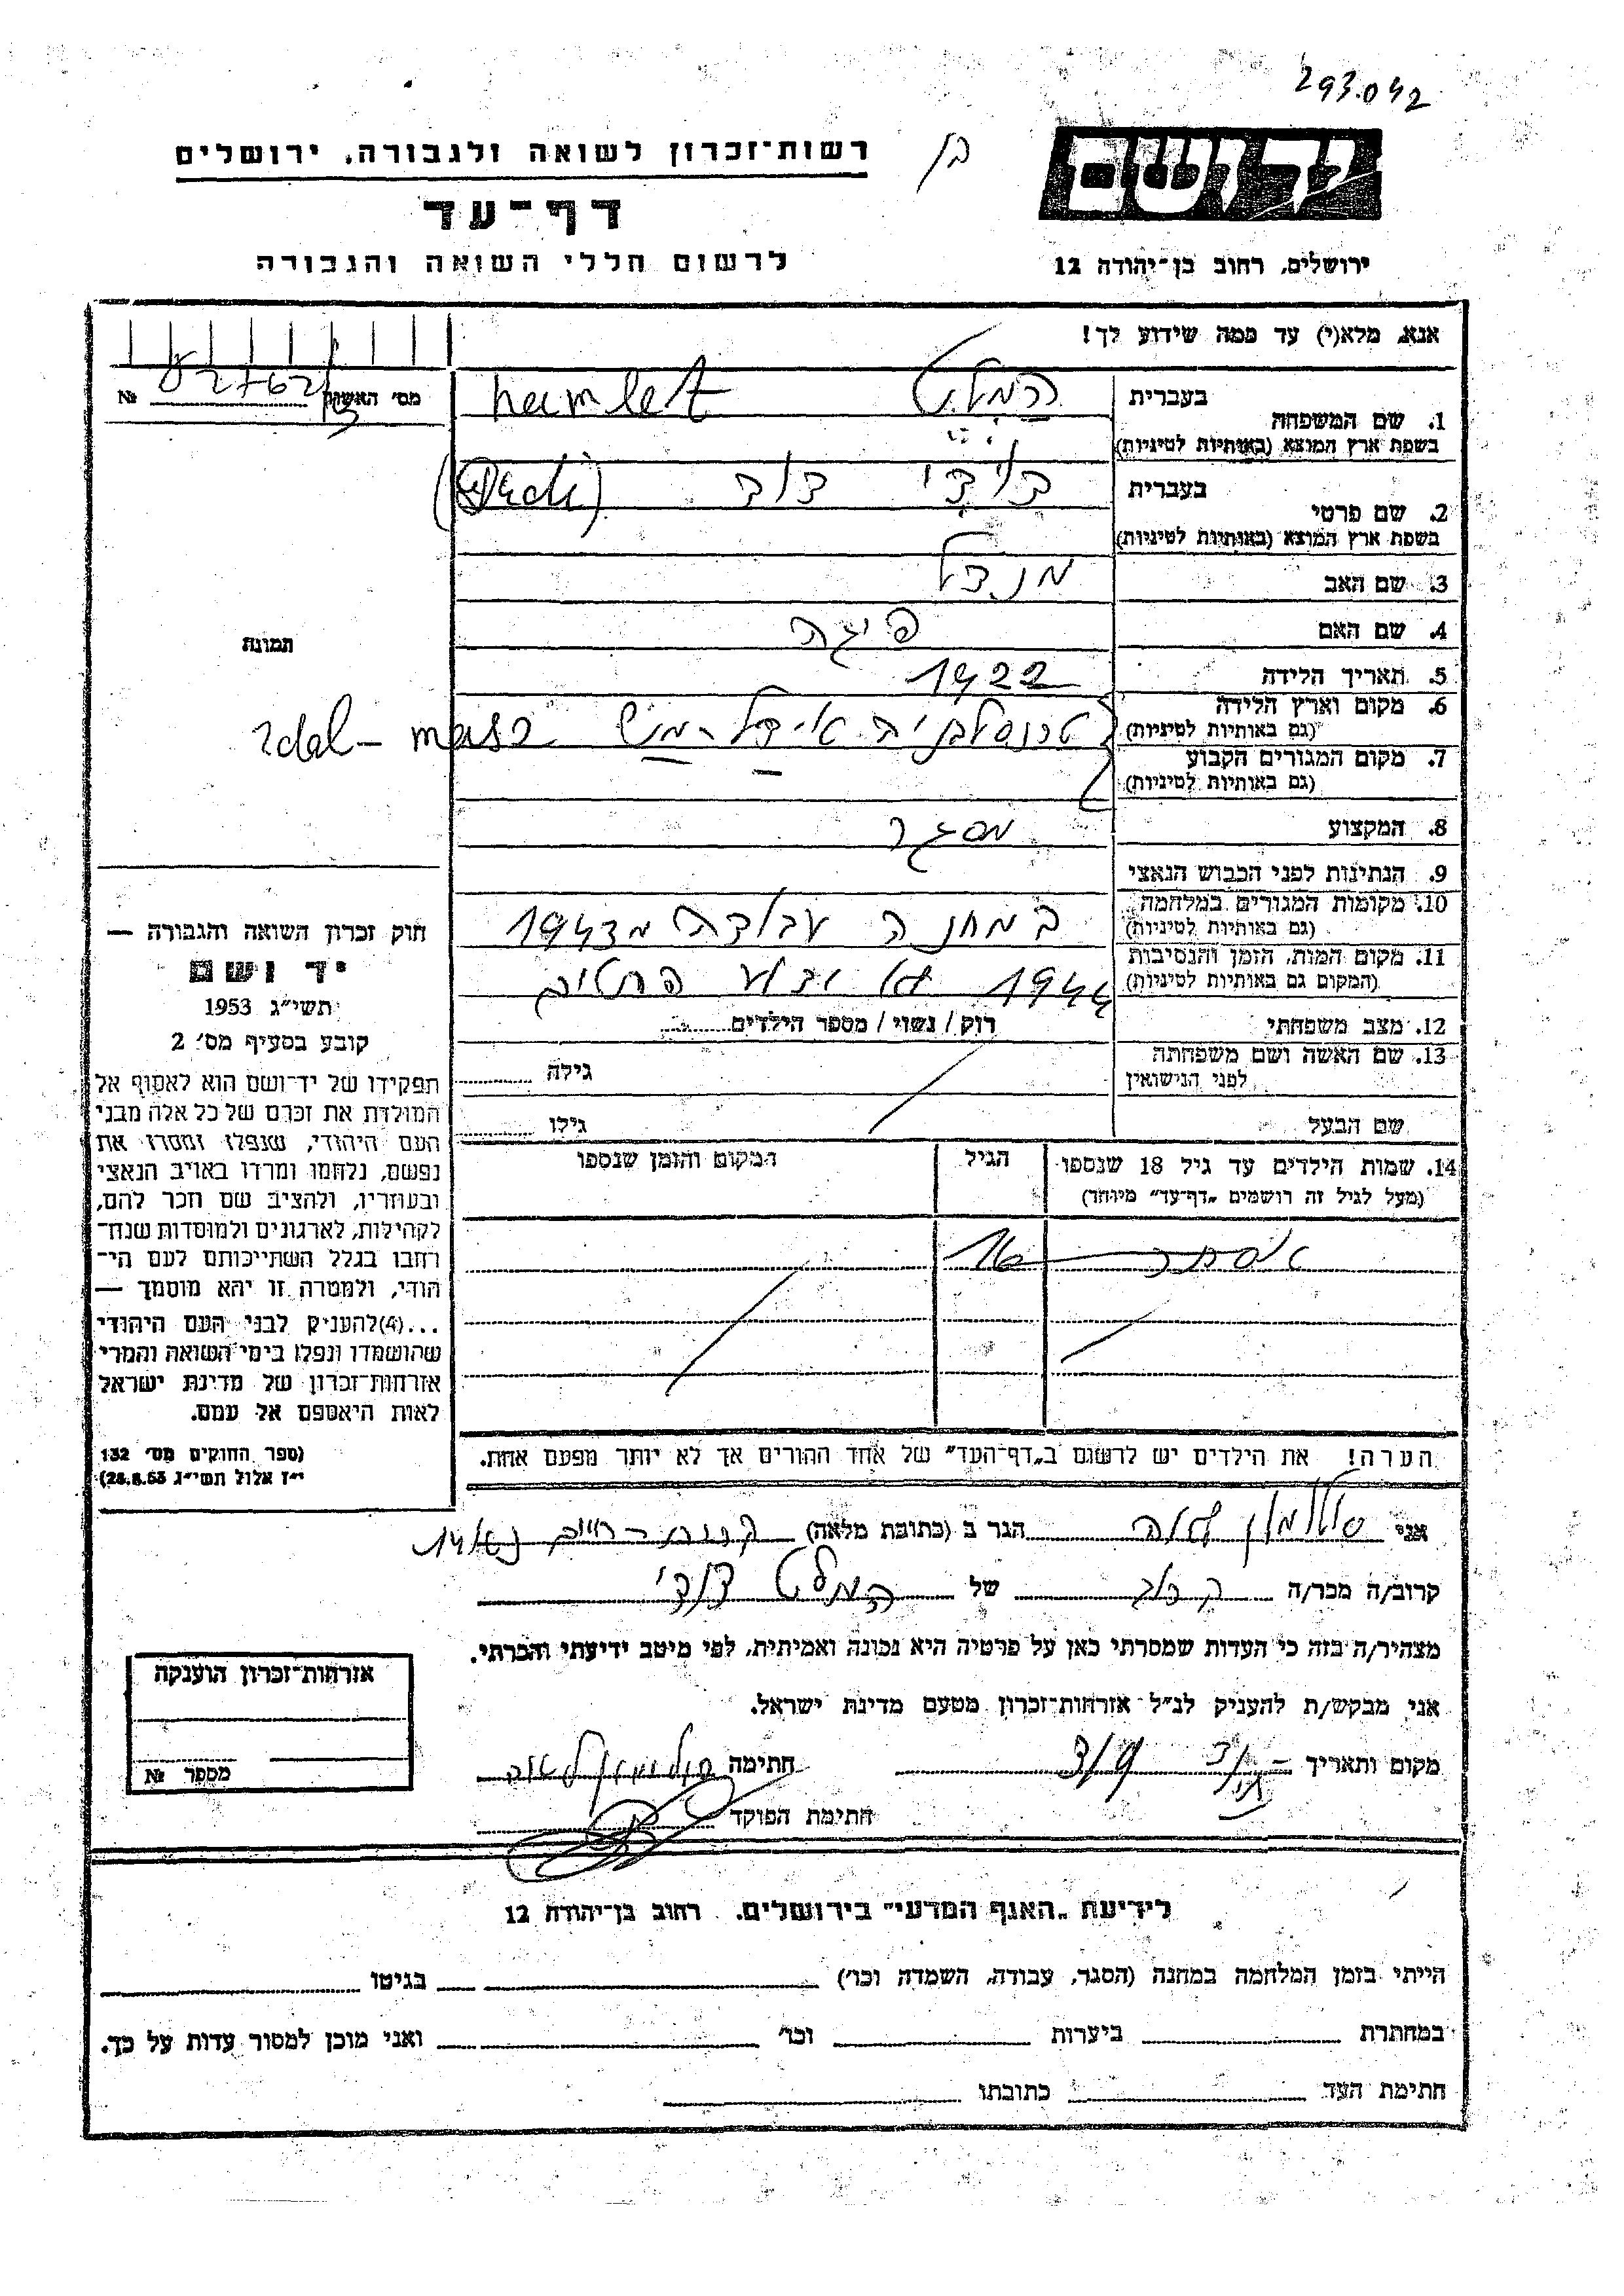 293.042
יד ושם
בן
רשות־זכרון לשואה ולגבורה, ירושלים
דף־עד
לרשום חללי השואה והגבורה
ירושלים, רחוב בן־יהודה 12
אנא, מלא(י) עד כמה שידוע לך!
מס' האשור №
1. שם המשפחה בעברית המלט hamlet
בשפת ארץ המוצא (באותיות לטיניות)
2. שם פרטי בעברית דוד
בשפת ארץ המוצא (באותיות לטיניות)
3. שם האב מנדל
4. שם האם פיגה
5. תאריך הלידה 1922
6. מקום וארץ הלידה טרנסלבניה אידל-מש
(גם באותיות לטיניות)
7. מקום המגורים הקבוע
(גם באותיות לטיניות)
8. המקצוע מסגר
9. הנתינות לפני הכבוש הנאצי
10. מקומות המגורים במלחמה במחנה עבודה מ1943
(גם באותיות לטיניות)
11. מקום המות, הזמן והנסיבות 1944
(המקום גם באותיות לטיניות)
12. מצב משפחתי רוק / נשוי / מספר הילדים
13. שם האשה ושם משפחתה
לפני הנישואין גילה
שם הבעל גילו
14. שמות הילדים עד גיל 18 שנספו הגיל המקום והזמן שנספו
(מעל לגיל זה רושמים „דף־עד" מיוחד)
אסתר 16
הערה! את הילדים יש לרשום ב„דף־העד" של אחד ההורים אך לא יותר מפעם אחת.
תמונה
חוק זכרון השואה והגבורה —
יד ושם
תשי"ג 1953
קובע בסעיף מס' 2
תפקידו של יד־ושם הוא לאסוף אל
המולדת את זכרם של כל אלה מבני
העם היהודי, שנפלו ומסרו את
נפשם, נלחמו ומרדו באויב הנאצי
ובעוזריו, ולהציב שם וזכר להם,
לקהילות, לארגונים ולמוסדות שנח־
רבו בגלל השתייכותם לעם הי־
הודי, ולמטרה זו יהא מוסמך —
...(4)להעניק לבני העם היהודי
שהושמדו ונפלו בימי השואה והמרי
אזרחות־זכרון של מדינת ישראל
לאות היאספם אל עמם.
(ספר החוקים מס' 132
י"ז אלול תשי"ג 28.8.53)
אני הגר ב (כתובת מלאה)
קרוב/ה מכר/ה של המלט
מצהיר/ה בזה כי העדות שמסרתי כאן על פרטיה היא נכונה ואמיתית, לפי מיטב ידיעתי והכרתי.
אני מבקש/ת להעניק לנ"ל אזרחות־זכרון מטעם מדינת ישראל.
מקום ותאריך חתימה
חתימת הפוקד
אזרחות־זכרון הוענקה
מספר №
לידיעת „האגף המדעי" בירושלים, רחוב בן־יהודה 12
הייתי בזמן המלחמה במחנה (הסגר, עבודה, השמדה וכו') בגיטו
במחתרת ביערות וכו' ואני מוכן למסור עדות על כך.
חתימת העד כתובתו